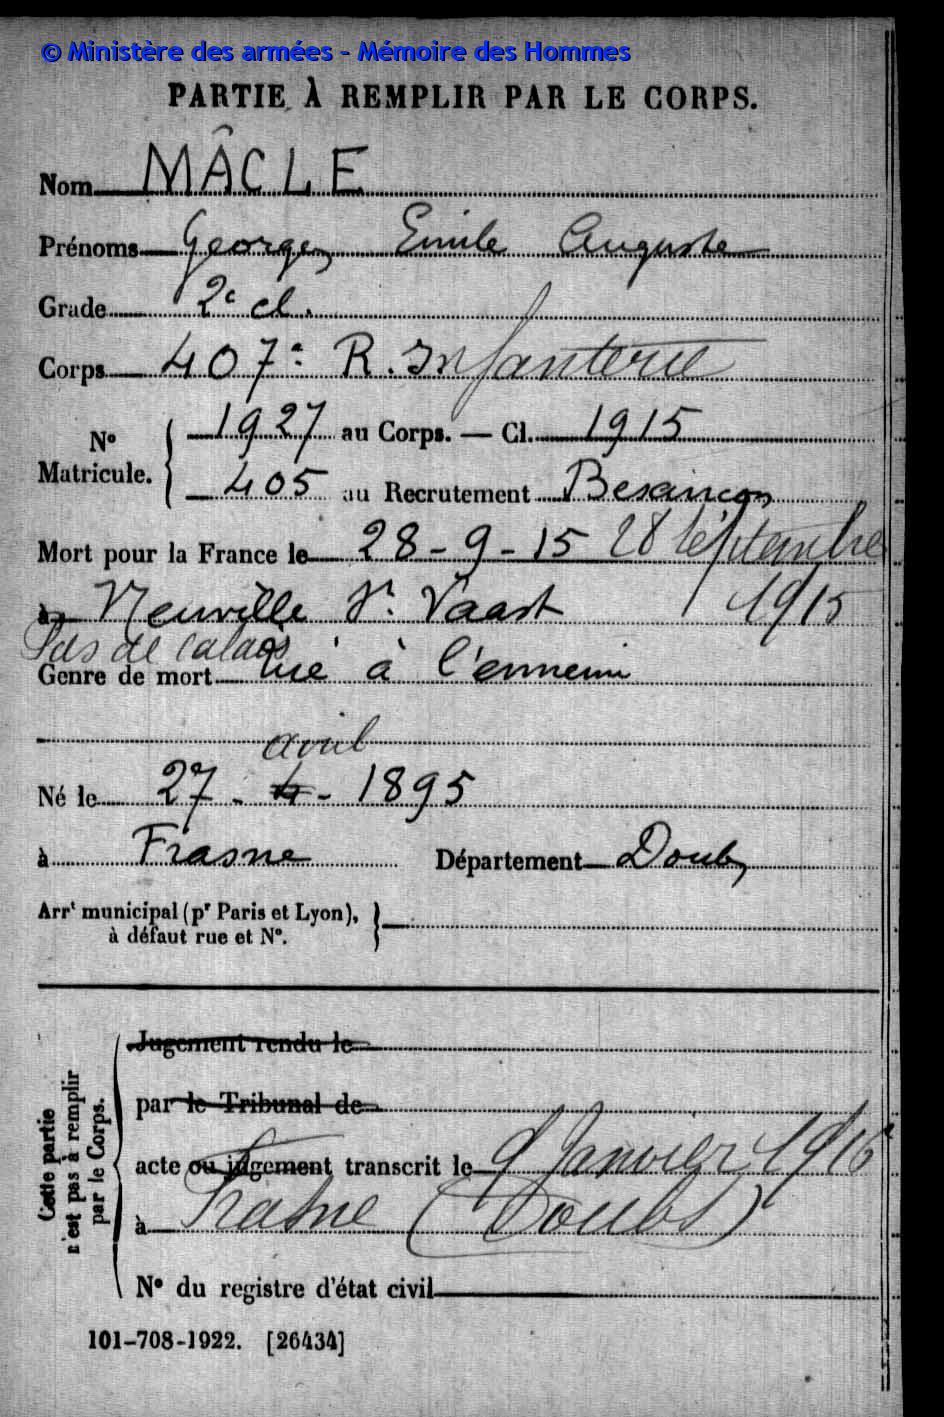 © Ministère des armées - Mémoire des Hommes
PARTIE À REMPLIR PAR LE CORPS.
Nom MÂCLE
Prénoms Georges Emile Auguste
Grade 2e cl.
Corps 407e R. Infanterie
No Matricule. { 1927 au Corps. — Cl. 1915
405 au Recrutement Besançon
Mort pour la France le 28-9-15 28 septembre
à Neuville St. Vaast 1915
Pas de Calais
Genre de mort tué à l'ennemi
avril
Né le 27 - 4 - 1895
à Frasne Département Doubs
Arrt municipal (pr Paris et Lyon),
à défaut rue et No.
Cette partie
n'est pas à remplir
par le Corps.
Jugement rendu le
par le Tribunal de
acte ou jugement transcrit le 9 Janvier 1916
à Frasne (Doubs)
No du registre d'état civil
101-708-1922. [26434]